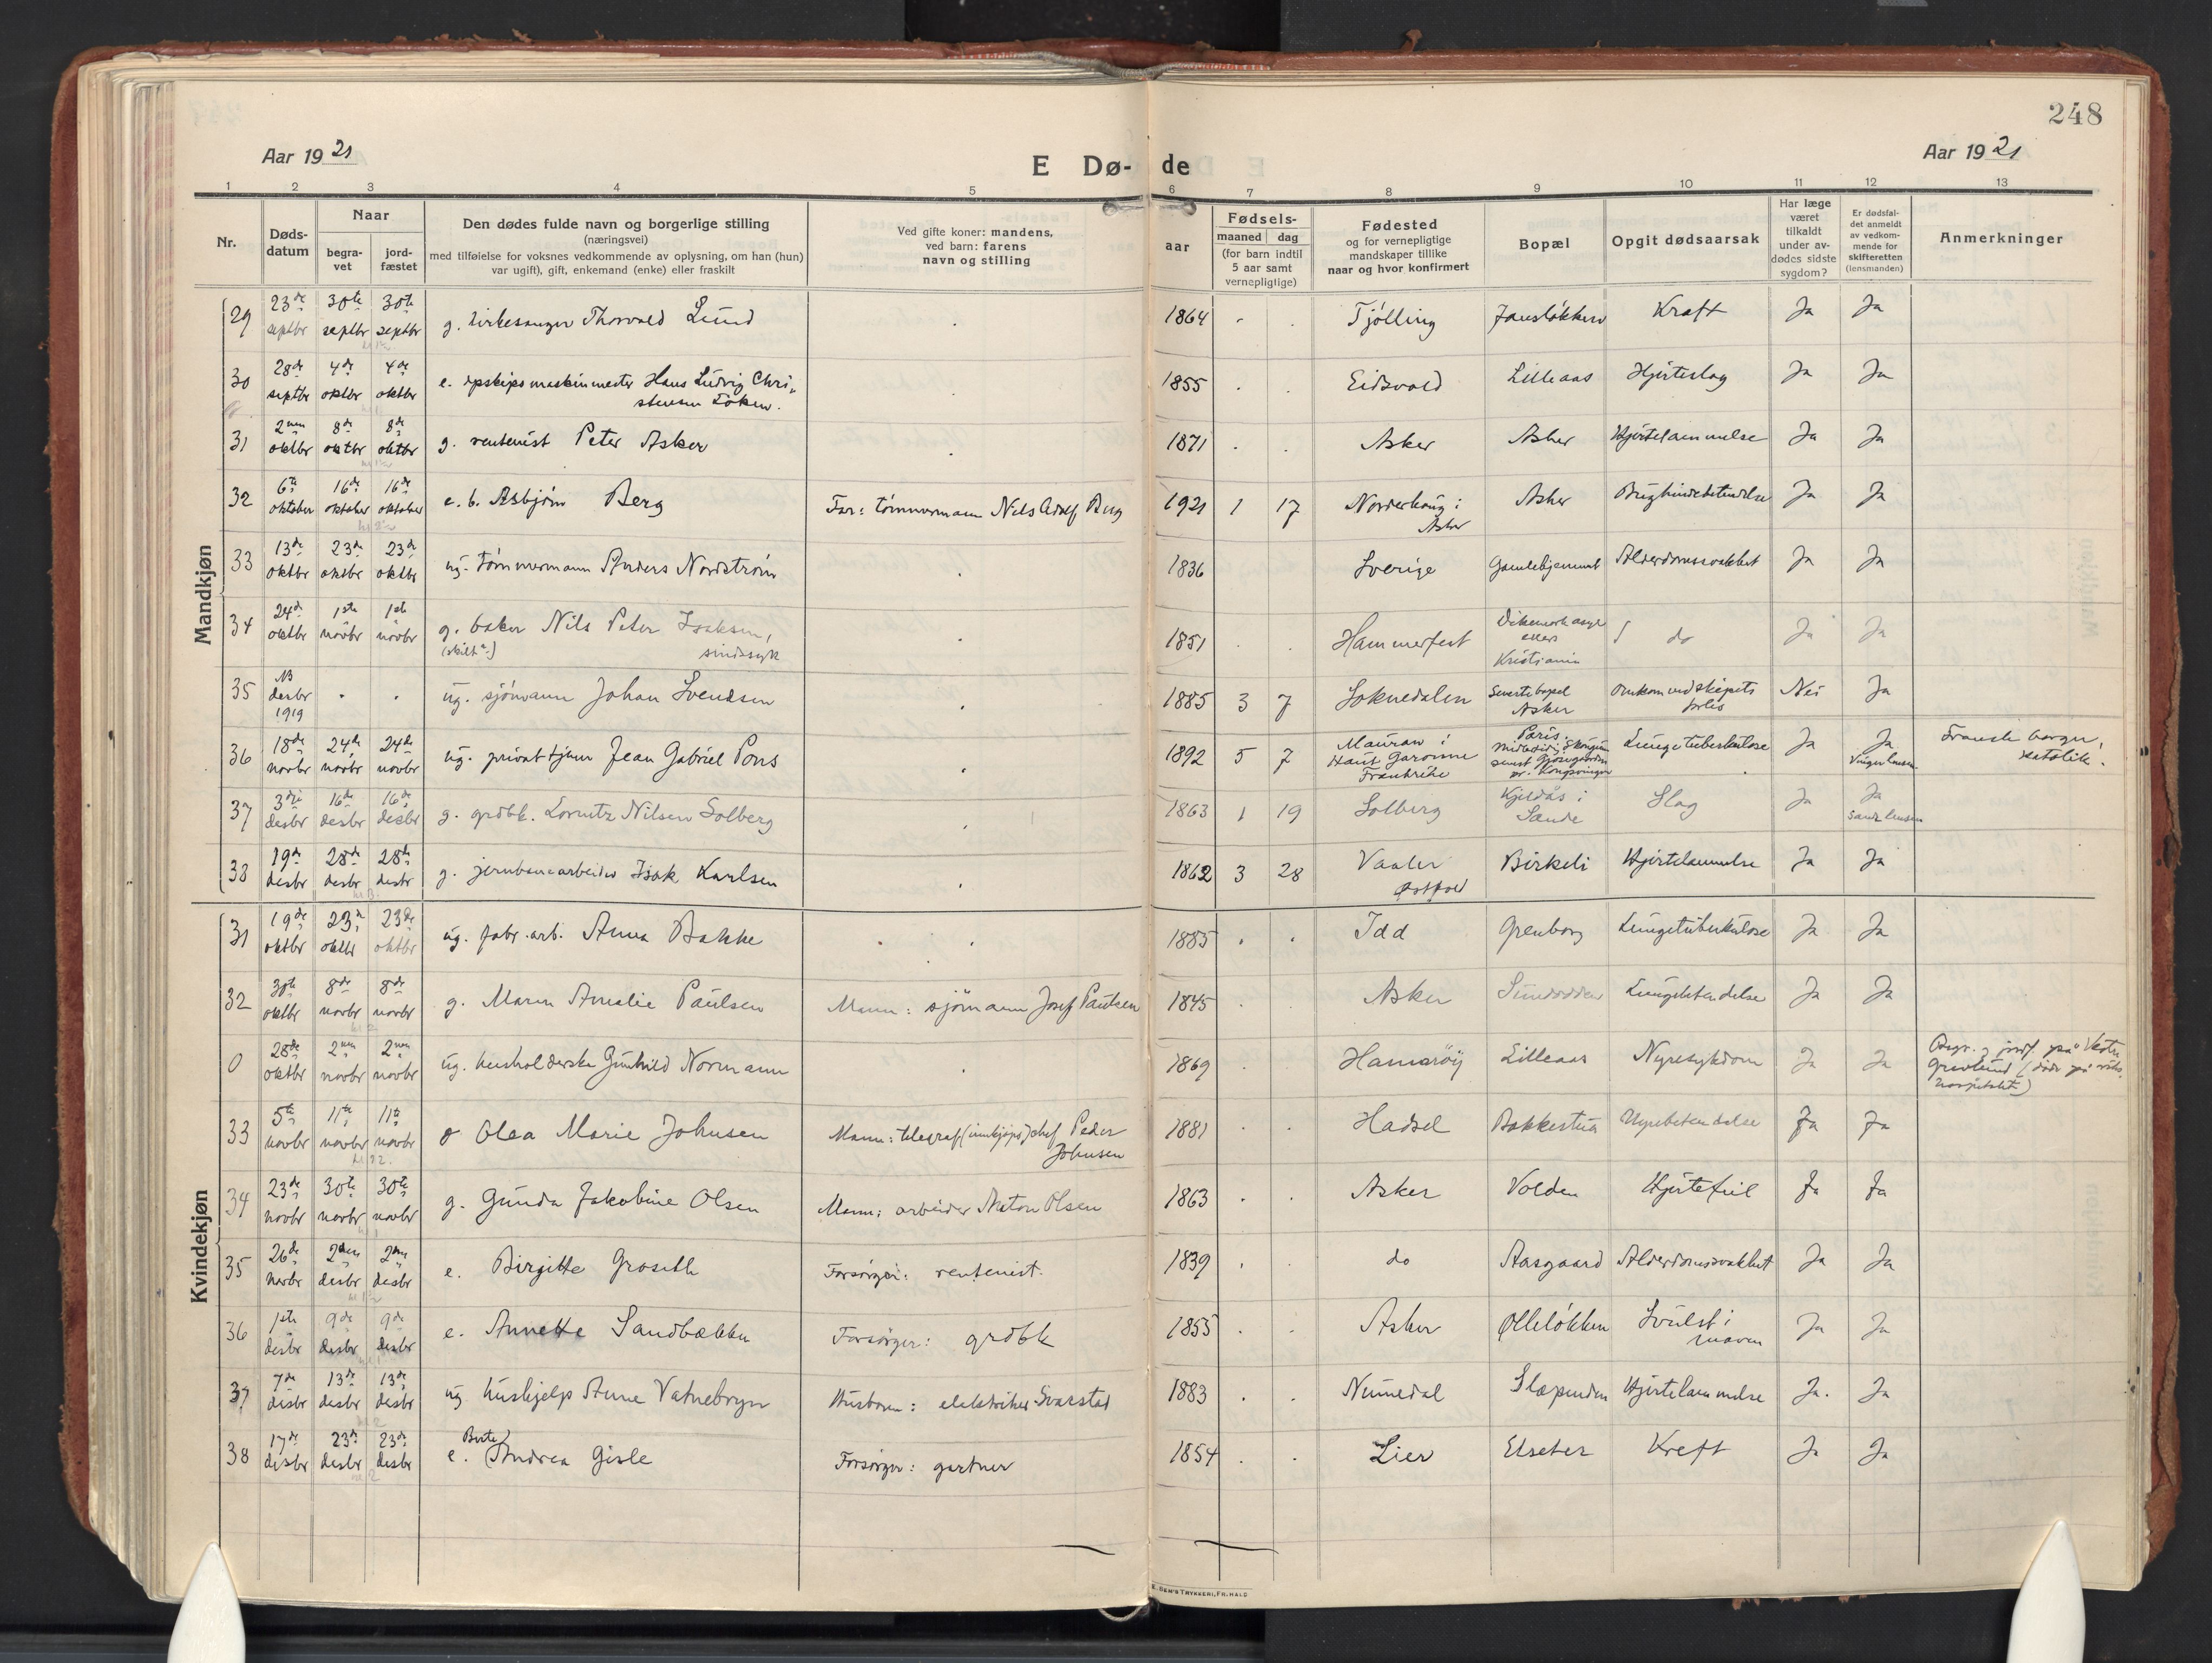 248
Aar 1921
E Dø-de
Aar 1921
1 2 3 4 5 6 7 8 9 10 11 12 13
Nr.
Døds-
datum
Naar
begra-
vet
jord-
fæstet
Den dødes fulde navn og borgerlige stilling
(næringsvei)
med tilføielse for voksnes vedkommende av oplysning, om han (hun)
var ugift), gift, enkemand (enke) eller fraskilt
Ved gifte koner: mandens,
ved barn: farens
navn og stilling
aar
Fødsels-
maaned dag
(for barn indtil
5 aar samt
vernepligtige)
Fødested
og for vernepligtige
mandskaper tillike
naar og hvor konfirmert
Bopæl
Opgit dødsaarsak
Har læge
været
tilkaldt
under av-
dødes sidste
sygdom?
Er dødsfal-
det anmeldt
av vedkom-
mende for
skifteretten
(lensmanden)
Anmerkninger
Mandkjøn
29 23de septbr 30te septbr 30te septbr g. kirkesanger Thorvald Lund 1864 Tjølling Jansløkken Kræft Ja Ja
30 28de septbr 4de oktbr 4de oktbr e. dpskipsmaskinmester Hans Ludvig Chri-
stensen Løken. 1855 Eidsvold Lilleaas Hjerteslag Ja Ja
31 2nen oktbr 8de oktbr 8de oktbr g. rentenist Peter Asker 1871 Asker Asker Hjertelammelse Ja Ja
32 6te oktober 16de oktober 16de oktober e. b. Asbjørn Berg Far: tømmermann Nils Adolf Berg 1921 1 17 Norderhaug i
Asker Asker Brysthindebetændelse Ja Ja
33 13de oktbr 23de oktbr 23de oktbr ug. tømmermann Anders Nordstrøm 1836 Sverige Gamlehjemmet Alderdomssvakhet Ja Ja
34 24de oktbr 1ste novbr 1ste novbr g. baker Nils Peter Isaksen,
(skilt) sindssyk 1851 Hammerfest Dikemark asyl
ellers
Kristiania do Ja Ja
35 NB desbr 1919 ug. sjømann Johan Svendsen 1885 3 7 Soknedalen Seneste bopel
Asker Omkom ved skipets
forlis Nei Ja
36 18de novbr 24de novbr 24de novbr ug. privattjener Jean Gabriel Pons 1892 5 7 Mauran i
Haut Garonne
Frankrike Paris,
pr. Kongsvinger Lungetuberkulose Ja Ja
Vinger lensm. Fransk borger,
katolik.
37 3dje desbr 16de desbr 16de desbr g. grdbk. Lorentz Nilsen Solberg 1863 1 19 Solberg Kjeldås i
Sande Slag Ja Ja
Sande lensm
38 19de desbr 28de desbr 28de desbr g. jernbanearbeider Isak Karlsen 1862 3 28 Vaaler
Østfold Birkeli Hjertelammelse Ja Ja
Kvindekjøn
31 19de oktbr 23de oktbr 23de oktbr ug. fabr.arb. Anna Bakke 1885 Idd Grenborg Lungetuberkulose Ja Ja
32 30te oktbr 8de novbr 8de novbr g. Maren Amalie Paulsen Mann: sjømann Josef Paulsen 1845 Asker Lungebetendelse Ja Ja
0 28de oktbr 2nen novbr 2nen novbr ug. husholderske Gunhild Normann 1869 Hamarøy Lilleaas Nyresykdom Ja Ja Begr. og jordf. på Vestre
Gravlund (døde på riks-
hospitalet)
33 5te novbr 11te novbr 11te novbr g Olea Marie Johnsen Mann: telegraf(innkjøps)chef Peder
Johnsen 1881 Hadsel Bakkestua Nyrebetendelse Ja Ja
34 23de novbr 30te novbr 30te novbr g. Gunda Jakobine Olsen Mann: arbeider Anton Olsen 1863 Asker Volden Hjertefeil Ja Ja
35 26de novbr 2nen desbr 2nen desbr e. Birgitte Groseth Forsørger: rentenist. 1839 do Aasgaard Alderdomssvakhet Ja Ja
36 1ste desbr 9de desbr 9de desbr e. Annette Sandbækken Forsørger: grdbk 1855 Asker Olleløkken Svulst i
maven Ja Ja
37 7de desbr 13de desbr 13de desbr ug. hushjelp Anne Vatnebryn Husbonn: elektriker Svarstad 1883 Numedal Slæpenden Hjertelammelse Ja. Ja
38 17de desbr 23de desbr 23de desbr e. Berte Andrea Gisle Forsørger: gartner 1854 Lier Elseter Kreft Ja Ja
TRYKKERI, FR.HALD